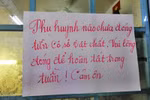 Phụ huynh nào chưa đóng
tiền cơ sở vật chất, thì tới
đóng để hoàn tất trong
tuần! Cảm ơn